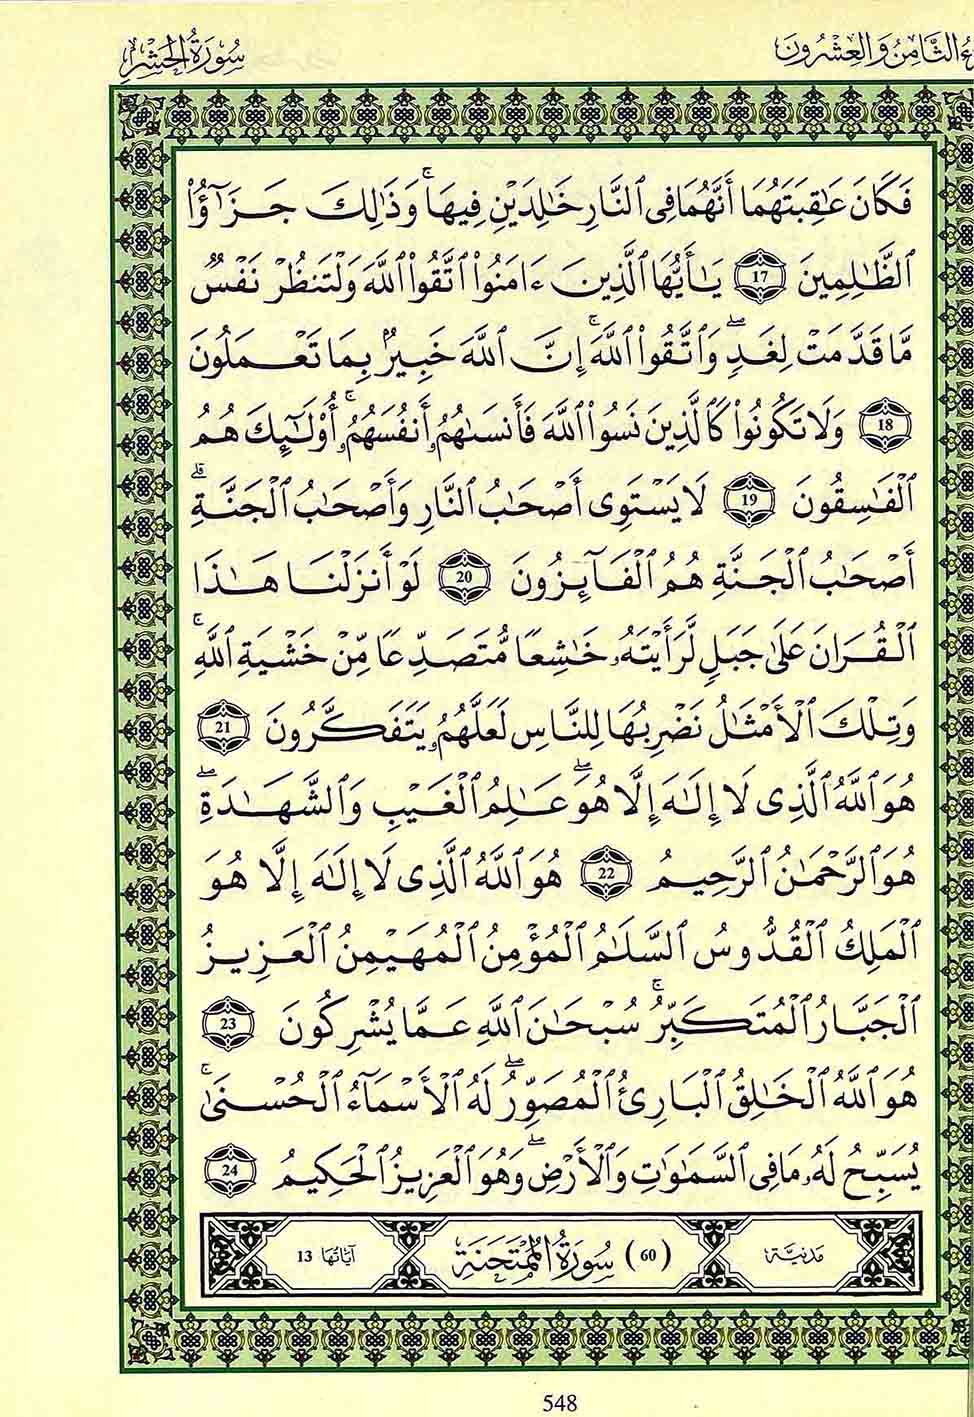 سُورَةُ الحَشْرِ
الثَّامِنُ وَالعِشْرُونَ
فَكَانَ عَٰقِبَتَهُمَا أَنَّهُمَا فِى ٱلنَّارِ خَٰلِدَيْنِ فِيهَا ۚ وَذَٰلِكَ جَزَٰٓؤُا۟
ٱلظَّٰلِمِينَ 17 يَٰأَيُّهَا ٱلَّذِينَ ءَامَنُوا۟ ٱتَّقُوا۟ ٱللَّهَ وَلْتَنظُرْ نَفْسٌ
مَّا قَدَّمَتْ لِغَدٍ ۖ وَٱتَّقُوا۟ ٱللَّهَ ۚ إِنَّ ٱللَّهَ خَبِيرٌۢ بِمَا تَعْمَلُونَ
18 وَلَا تَكُونُوا۟ كَٱلَّذِينَ نَسُوا۟ ٱللَّهَ فَأَنسَىٰهُمُۥٓ أَنفُسَهُمُۥٓ ۚ أُو۟لَٰٓئِكَ هُمُ
ٱلْفَٰسِقُونَ 19 لَا يَسْتَوِى أَصْحَٰبُ ٱلنَّارِ وَأَصْحَٰبُ ٱلْجَنَّةِ ۗ
أَصْحَٰبُ ٱلْجَنَّةِ هُمُ ٱلْفَآئِزُونَ 20 لَوْ أَنزَلْنَا هَٰذَا
ٱلْقُرَانَ عَلَىٰ جَبَلٍ لَّرَأَيْتَهُۥ خَٰشِعًا مُّتَصَدِّعًا مِّنْ خَشْيَةِ ٱللَّهِ ۚ
وَتِلْكَ ٱلْأَمْثَٰلُ نَضْرِبُهَا لِلنَّاسِ لَعَلَّهُمُۥ يَتَفَكَّرُونَ 21
هُوَ ٱللَّهُ ٱلَّذِى لَا إِلَٰهَ إِلَّا هُوَ ۖ عَٰلِمُ ٱلْغَيْبِ وَٱلشَّهَٰدَةِ ۖ
هُوَ ٱلرَّحْمَٰنُ ٱلرَّحِيمُ 22 هُوَ ٱللَّهُ ٱلَّذِى لَا إِلَٰهَ إِلَّا هُوَ
ٱلْمَلِكُ ٱلْقُدُّوسُ ٱلسَّلَٰمُ ٱلْمُؤْمِنُ ٱلْمُهَيْمِنُ ٱلْعَزِيزُ
ٱلْجَبَّارُ ٱلْمُتَكَبِّرُ ۚ سُبْحَٰنَ ٱللَّهِ عَمَّا يُشْرِكُونَ 23
هُوَ ٱللَّهُ ٱلْخَٰلِقُ ٱلْبَارِئُ ٱلْمُصَوِّرُ ۖ لَهُ ٱلْأَسْمَآءُ ٱلْحُسْنَىٰ ۚ
يُسَبِّحُ لَهُۥ مَا فِى ٱلسَّمَٰوَٰتِ وَٱلْأَرْضِ ۖ وَهُوَ ٱلْعَزِيزُ ٱلْحَكِيمُ 24
مَدَنِيَّة (60) سُورَةُ المُمْتَحَنَةِ آيَاتُهَا 13
548